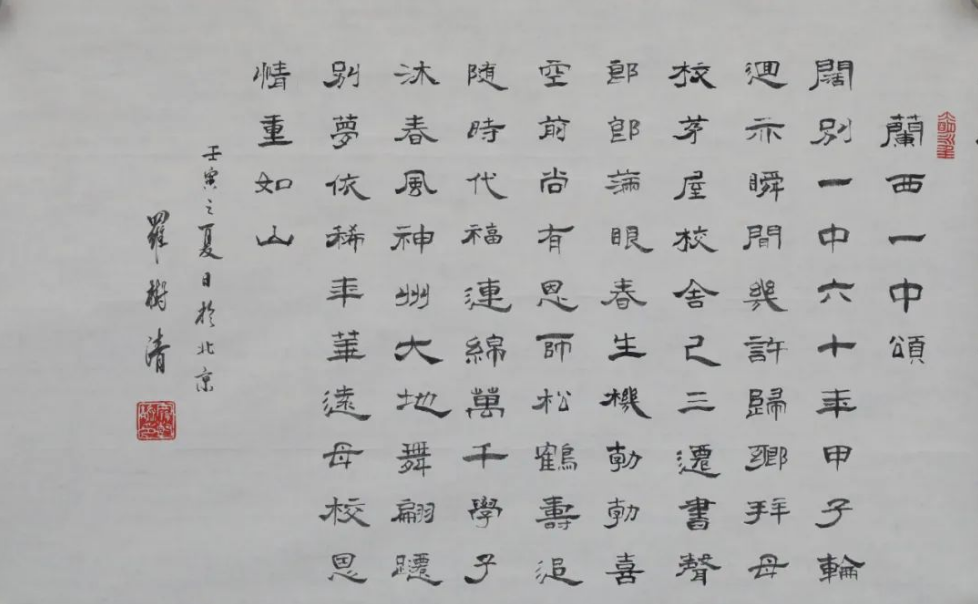 蘭西一中頌
闊别一中六十年甲子輪
迴亦瞬間幾許歸鄉拜母
校茅屋校舍已三遷書聲
郎郎滿眼春生機勃勃喜
空前尚有恩師松鶴壽追
随時代福連綿萬千學子
沐春風神州大地舞翩躚
别夢依稀年華遠母校恩
情重如山
壬寅之夏日於北京
羅樹清